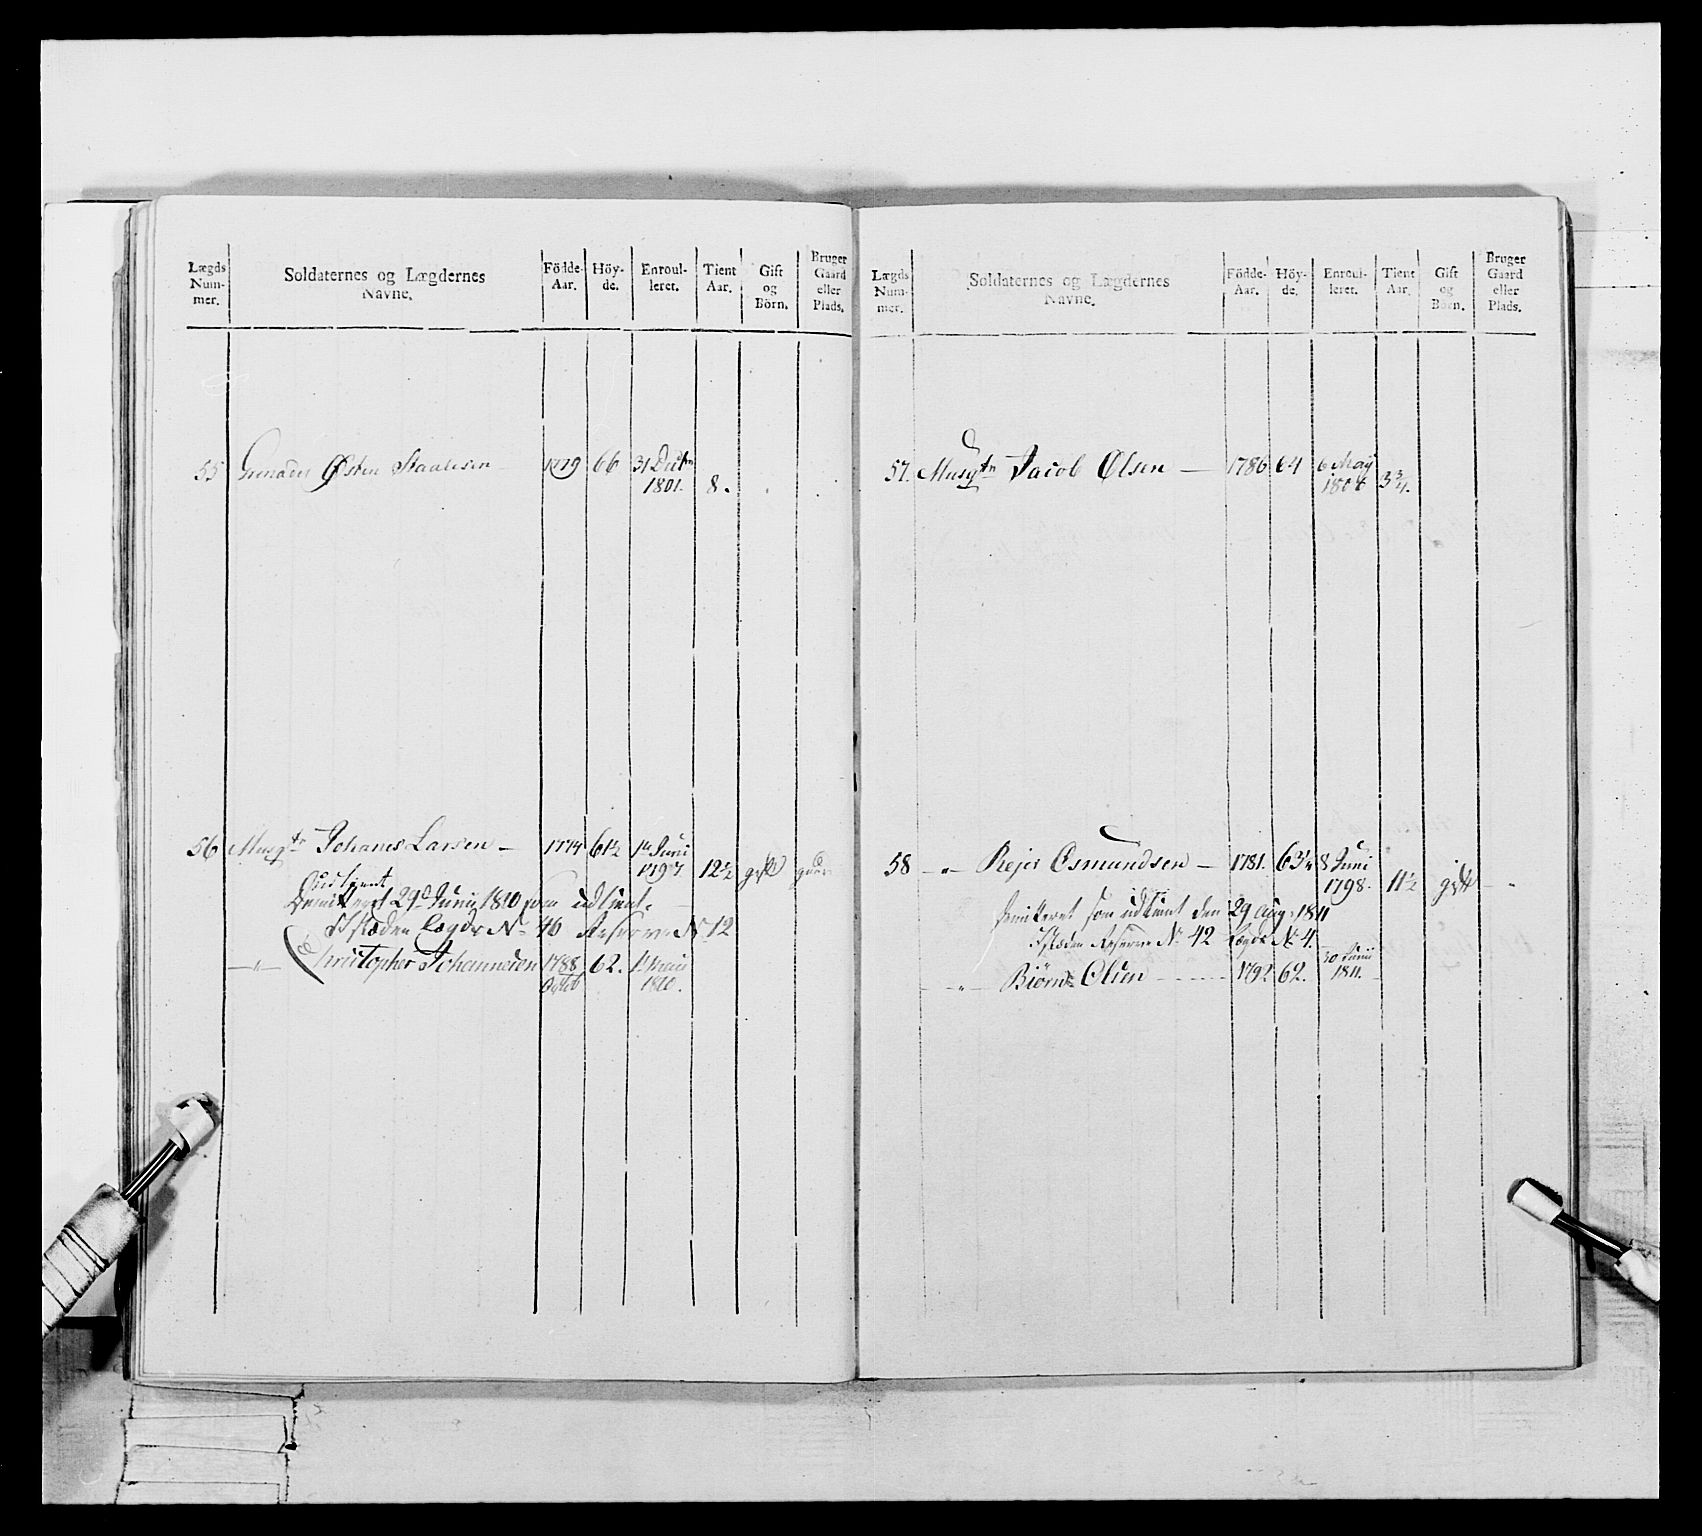 Lægds Num- mer.
Soldaternes og Lægdernes Navne.
Födde- Aar.
Höy- de.
Enroul- leret.
Tient Aar.
Gift og Börn.
Bruger Gaard eller Plads.
55 Grenader Østen Staalesen 1779 66 31 Decbr
1801. 8.
56 Musqtr Johanes Larsen — 1774 61½ 1te Junii
1797 12½ gift
Demitteret 29d Junii 1810 som udtient.
I stæden Lægds No 46 Reserve No 12
—„— Christopher Johannesen 1788 62. 1 Maii
1810.
Lægds Num- mer.
Soldaternes og Lægdernes Navne.
Födde- Aar.
Höy- de.
Enroul- leret.
Tient Aar.
Gift og Börn.
Bruger Gaard eller Plads.
57. Musqtr Jacob Olsen — 1786 64 6 May
1806 3¾.
58 —„— Rejer Osmundsen — 1781. 63½ 8 Juni
1798. 11½ gift —„
demitteret som udtient den 29 Aug. 1811
I stæden Reserve No 42 Lægds No 4.
—„— Biørn Olsen — 1792 62. 30 Junii
1811.